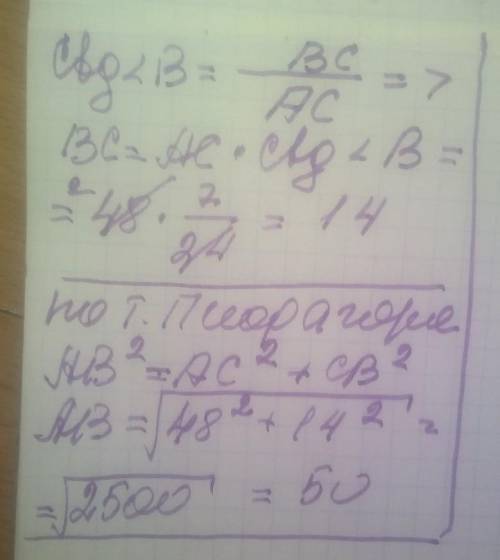 ctg < B = BC / AC = >
BC = AC · ctg < B =
= 48 · 7/24 = 14
по т. Пифагора
AB² = AC² + CB²
AB = √48² + 14² =
= √2500 = 50